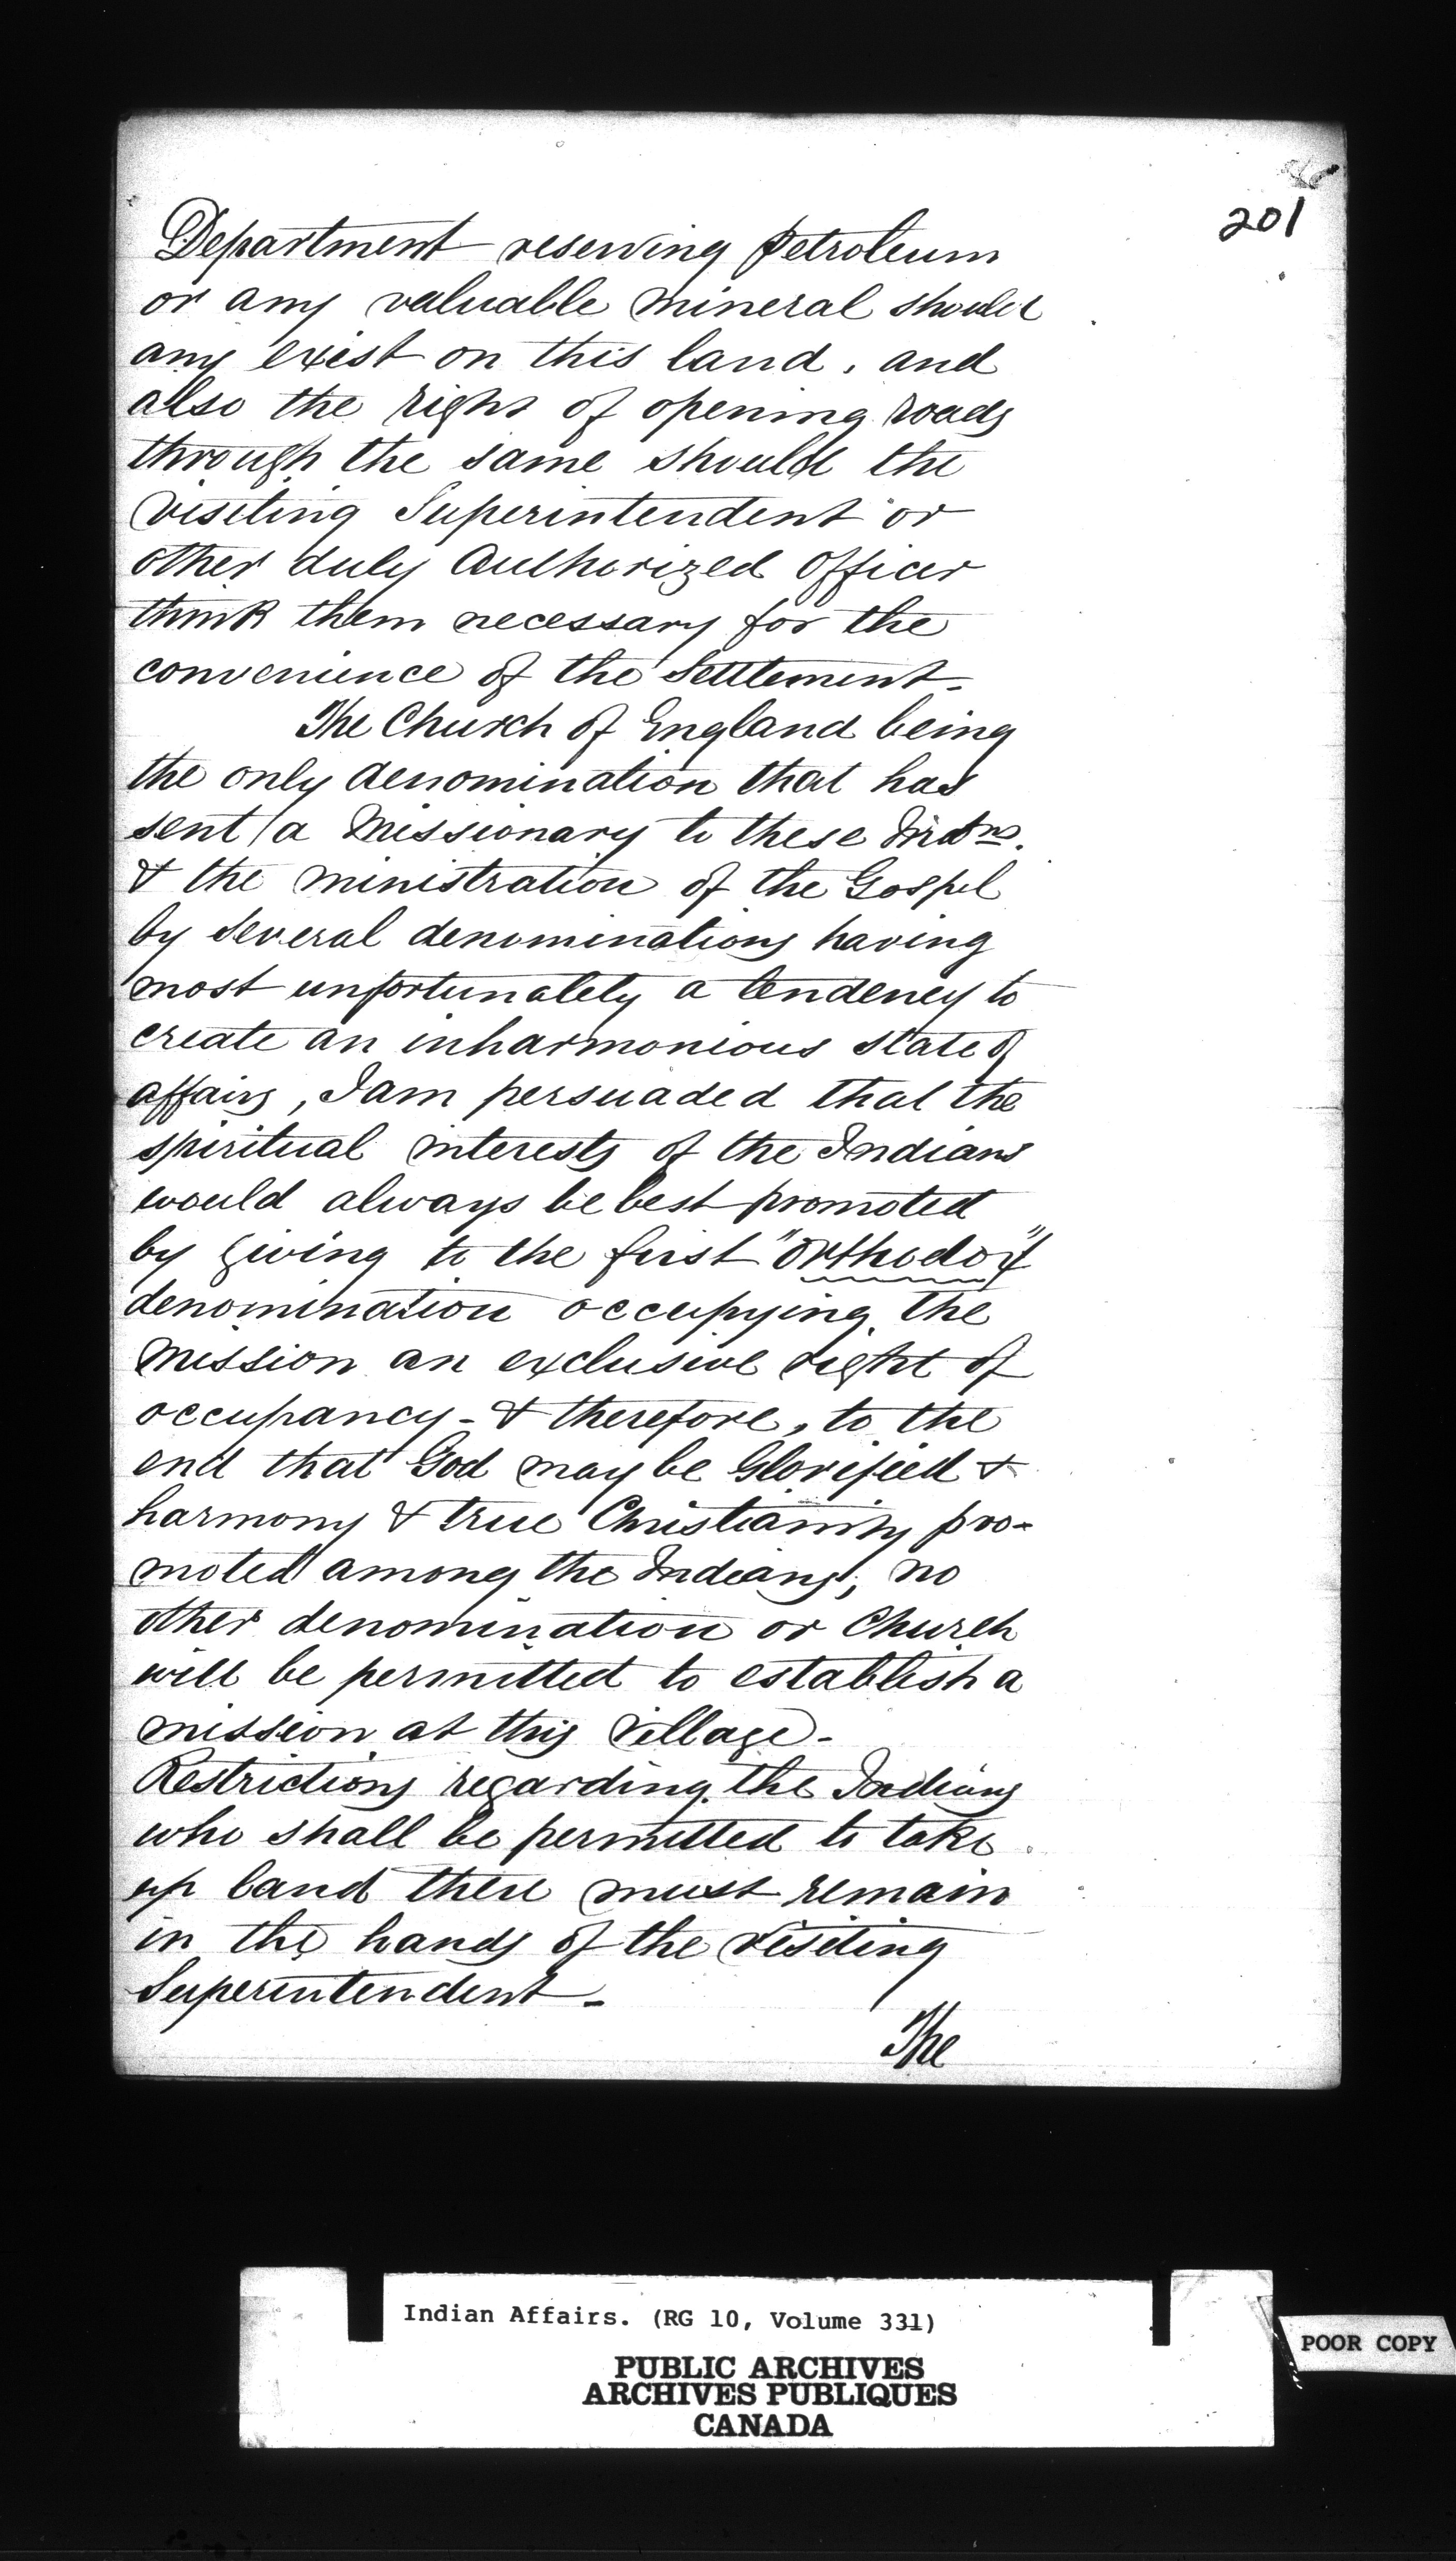 201
Department reserving petroleum
or any valuable mineral should
any exist on this land, and
also the right of opening roads
through the same should the
visiting Superintendent or
other duly Authorized Officer
think them necessary for the
convenience of the Settlement.
The Church of England being
the only denomination that has
sent a Missionary to these Indns.
& the ministration of the Gospel
by several denominations having
most unfortunately a tendency to
create an inharmonious state of
affairs, I am persuaded that the
spiritual interests of the Indians
would always be best promoted
by giving to the first "Orthodox"
denomination occupying the
mission an exclusive right of
occupancy - & therefore, to the
end that God may be Glorified &
harmony & true Christianity pro-
moted among the Indians, no
other denomination or Church
will be permitted to establish a
mission at this Village -
Restrictions regarding the Indians
who shall be permitted to take
up land there must remain
in the hands of the Visiting
Superintendent -
The
Indian Affairs. (RG 10, Volume 331)
PUBLIC ARCHIVES
ARCHIVES PUBLIQUES
CANADA
POOR COPY